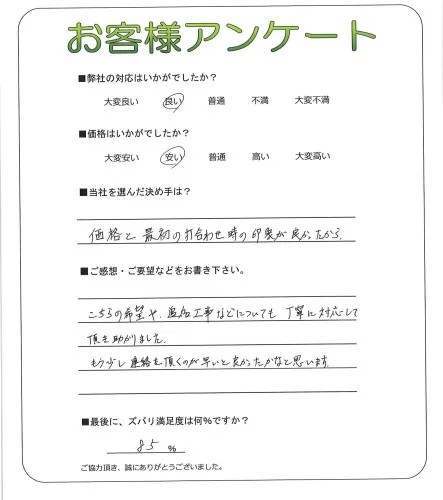 お客様アンケート
■弊社の対応はいかがでしたか？
大変良い 良い 普通 不満 大変不満
■価格はいかがでしたか？
大変安い 安い 普通 高い 大変高い
■当社を選んだ決め手は？
価格と最初の打合わせ時の印象が良かったから
■ご感想・ご要望などをお書き下さい。
こちらの希望や、追加工事などについても丁寧に対応して
頂き助かりました。
もう少し連絡を頂くのが早いと良かったかなと思います。
■最後に、ズバリ満足度は何％ですか？
85 ％
ご協力頂き、誠にありがとうございました。